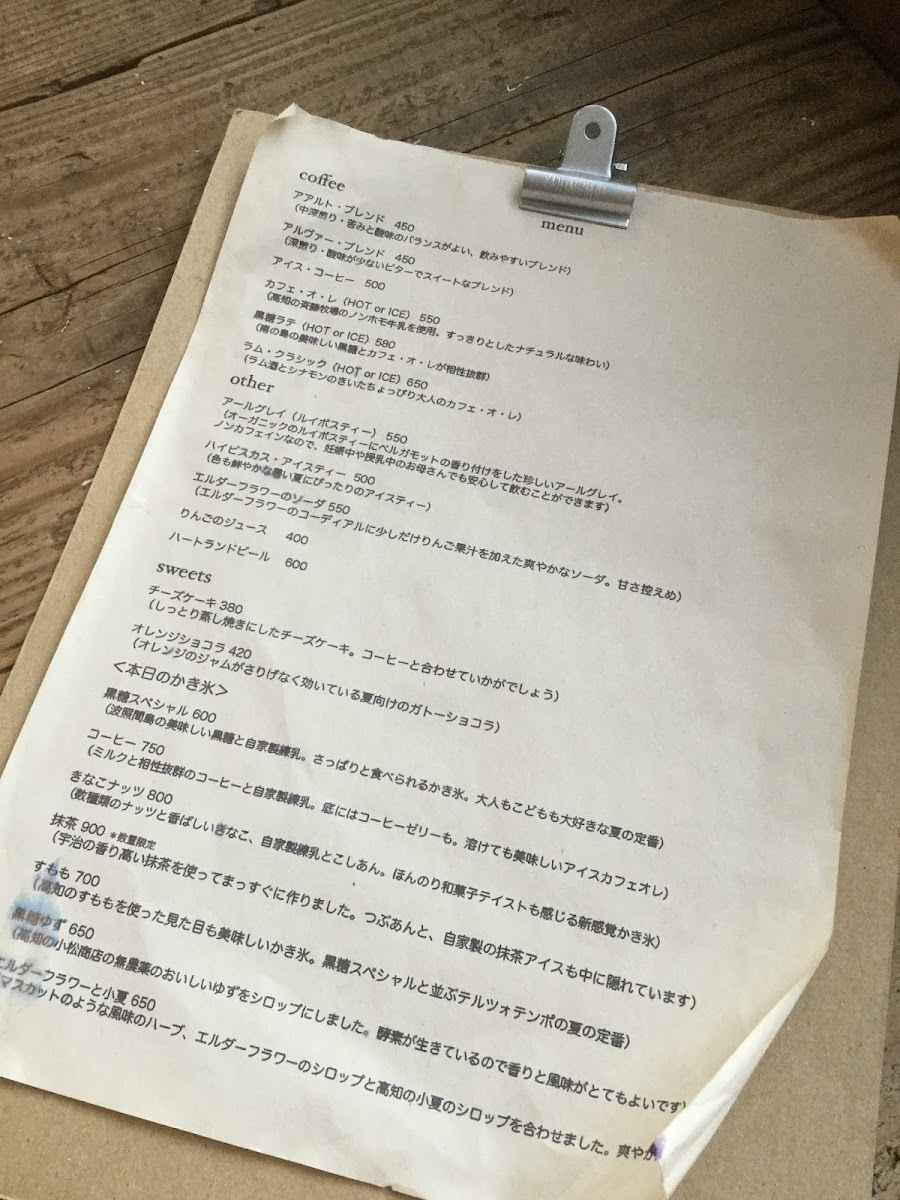 menu
coffee
アアルト・ブレンド 450
（中深煎り・苦みと酸味のバランスがよい、飲みやすいブレンド）
アルヴァー・ブレンド 450
（深煎り・酸味が少ないビターでスイートなブレンド）
アイス・コーヒー 500
カフェ・オ・レ（HOT or ICE）550
（高知の斉藤牧場のノンホモ牛乳を使用。すっきりとしたナチュラルな味わい）
黒糖ラテ（HOT or ICE）580
（南の島の美味しい黒糖とカフェ・オ・レが相性抜群）
ラム・クラシック（HOT or ICE）650
（ラム酒とシナモンのきいたちょっぴり大人のカフェ・オ・レ）
other
アールグレイ（ルイボスティー）550
（オーガニックのルイボスティーにベルガモットの香り付けをした珍しいアールグレイ。
ノンカフェインなので、妊娠中や授乳中のお母さんでも安心して飲むことができます）
ハイビスカス・アイスティー 500
（色も鮮やかな暑い夏にぴったりのアイスティー）
エルダーフラワーのソーダ 550
（エルダーフラワーのコーディアルに少しだけりんご果汁を加えた爽やかなソーダ。甘さ控えめ）
りんごのジュース 400
ハートランドビール 600
sweets
チーズケーキ 380
（しっとり蒸し焼きにしたチーズケーキ。コーヒーと合わせていかがでしょう）
オレンジショコラ 420
（オレンジのジャムがさりげなく効いている夏向けのガトーショコラ）
＜本日のかき氷＞
黒糖スペシャル 600
（波照間島の美味しい黒糖と自家製練乳。さっぱりと食べられるかき氷。大人もこどもも大好きな夏の定番）
コーヒー 750
（ミルクと相性抜群のコーヒーと自家製練乳。底にはコーヒーゼリーも。溶けても美味しいアイスカフェオレ）
きなこナッツ 800
（数種類のナッツと香ばしいきなこ、自家製練乳とこしあん。ほんのり和菓子テイストも感じる新感覚かき氷）
抹茶 900 *数量限定
（宇治の香り高い抹茶を使ってまっすぐに作りました。つぶあんと、自家製の抹茶アイスも中に隠れています）
すもも 700
（高知のすももを使った見た目も美味しいかき氷。黒糖スペシャルと並ぶテルツォテンポの夏の定番）
黒糖ゆず 650
（高知の小松商店の無農薬のおいしいゆずをシロップにしました。酵素が生きているので香りと風味がとてもよいです）
エルダーフラワーと小夏 650
マスカットのような風味のハーブ、エルダーフラワーのシロップと高知の小夏のシロップを合わせました。爽やか